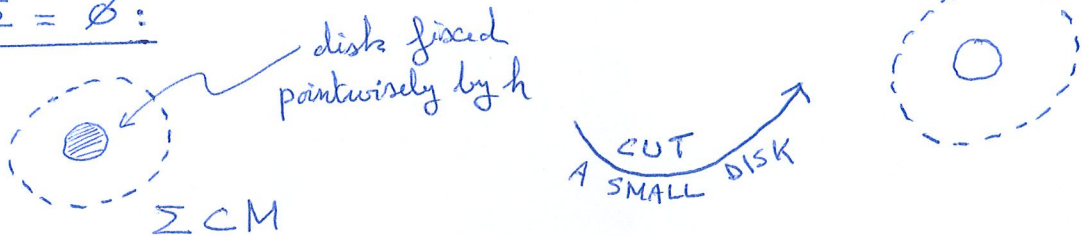 Σ = ∅ :
disk fixed
pointwisely by h
A SMALL CUT DISK
Σ ⊂ M